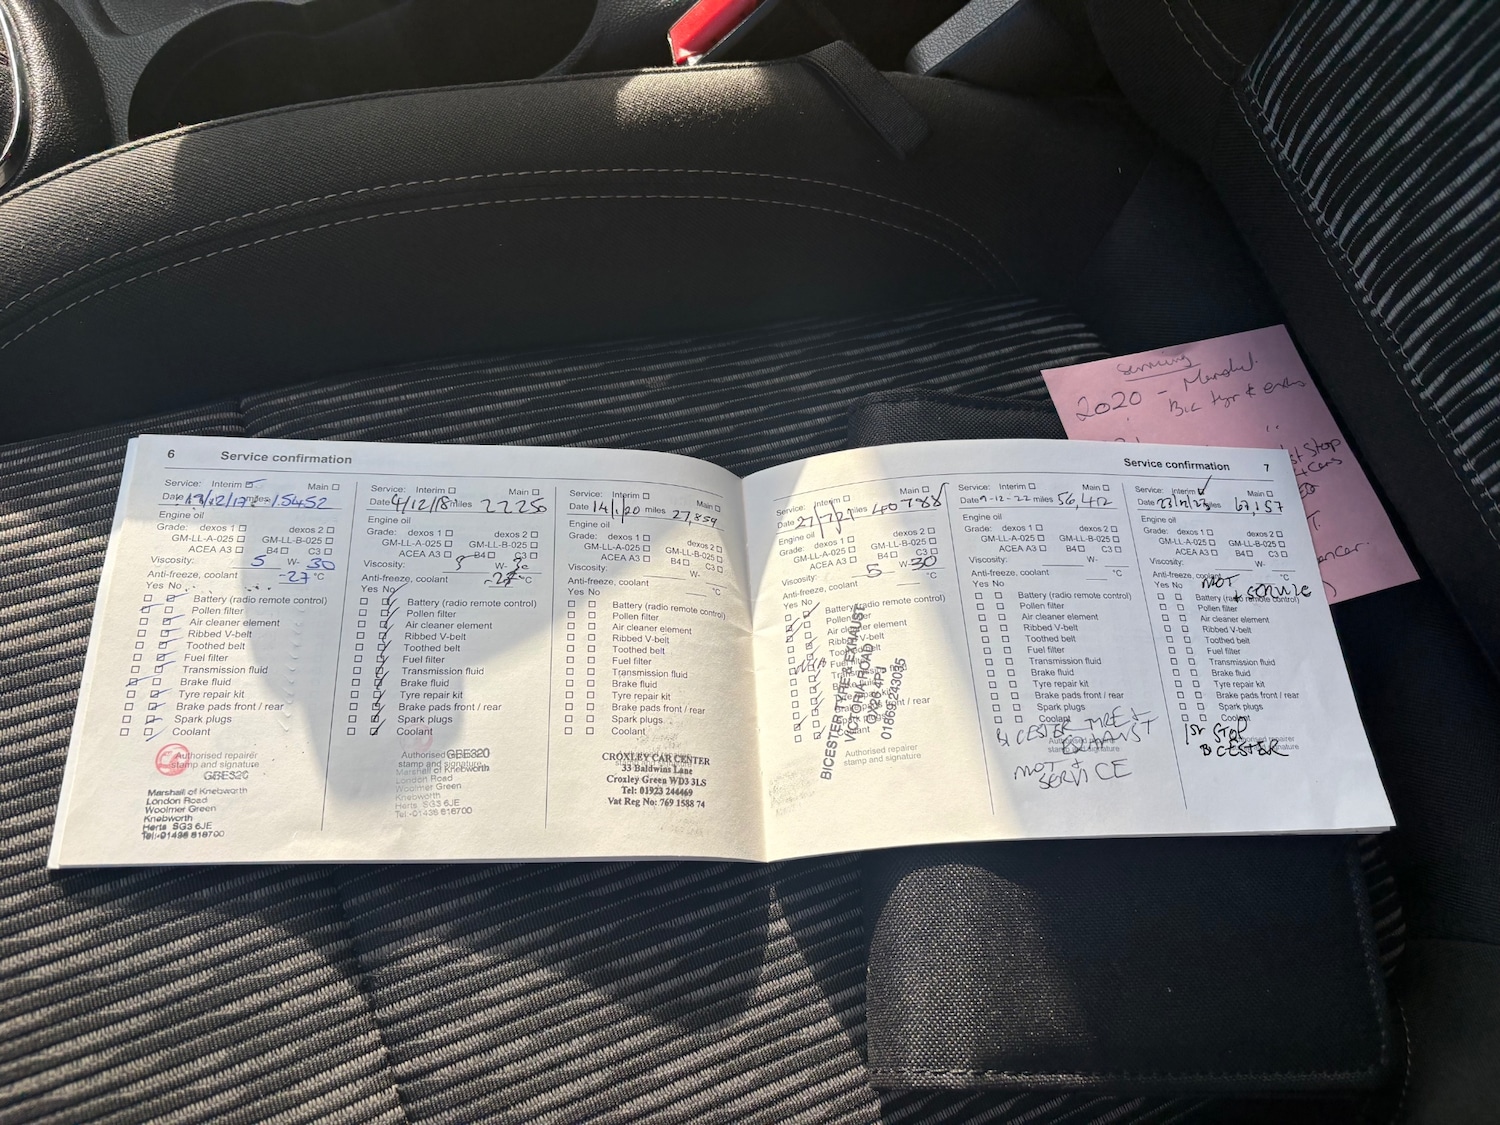 6 Service confirmation
Service: Interim Main
Date 13/12/17 miles 15452
Engine oil
Grade: dexos 1 dexos 2
GM-LL-A-025 GM-LL-B-025
ACEA A3 B4 C3
Viscosity: 5 W- 30
Anti-freeze, coolant -27 °C
Yes No
Battery (radio remote control)
Pollen filter
Air cleaner element
Ribbed V-belt
Toothed belt
Fuel filter
Transmission fluid
Brake fluid
Tyre repair kit
Brake pads front / rear
Spark plugs
Coolant
Authorised repairer
stamp and signature
GBE320
Marshall of Knebworth
London Road
Woolmer Green
Knebworth
Herts SG3 6JE
Service: Interim Main
Date 4/12/18 miles 22250
Engine oil
Grade: dexos 1 dexos 2
GM-LL-A-025 GM-LL-B-025
ACEA A3 B4 C3
Viscosity: W-
Anti-freeze, coolant -27 °C
Yes No
Battery (radio remote control)
Pollen filter
Air cleaner element
Ribbed V-belt
Toothed belt
Fuel filter
Transmission fluid
Brake fluid
Tyre repair kit
Brake pads front / rear
Spark plugs
Coolant
Authorised GBE320
stamp and signature
Marshall of Knebworth
London Road
Woolmer Green
Knebworth
Herts SG3 6JE
Service: Interim Main
Date 14/1/20 miles 27,859
Engine oil
Grade: dexos 1 dexos 2
GM-LL-A-025 GM-LL-B-025
ACEA A3 B4 C3
Viscosity: W-
Anti-freeze, coolant °C
Yes No
Battery (radio remote control)
Pollen filter
Air cleaner element
Ribbed V-belt
Toothed belt
Fuel filter
Transmission fluid
Brake fluid
Tyre repair kit
Brake pads front / rear
Spark plugs
Coolant
CROXLEY CAR CENTER
33 Baldwins Lane
Croxley Green WD3 3LS
Tel: 01923 244469
Vat Reg No: 769 1588 74
Service confirmation 7
Service: Interim Main
Date 27/7/21 40788
Engine oil
Grade: dexos 1 dexos 2
GM-LL-A-025 GM-LL-B-025
ACEA A3 B4 C3
Viscosity: 5 W- 30
Anti-freeze, coolant °C
Yes No
Battery (radio remote control)
Pollen filter
Air cleaner element
Ribbed V-belt
Authorised repairer
stamp and signature
BICESTER TYRE & EXHAUST
VICTORIA ROAD
OX26 4PJ
01869 243035
Service: Interim Main
Date 9-12-22 miles 56,412
Engine oil
Grade: dexos 1 dexos 2
GM-LL-A-025 GM-LL-B-025
ACEA A3 B4 C3
Viscosity: W-
Anti-freeze, coolant °C
Yes No
Battery (radio remote control)
Pollen filter
Air cleaner element
Ribbed V-belt
Toothed belt
Fuel filter
Transmission fluid
Brake fluid
Tyre repair kit
Brake pads front / rear
Spark plugs
Coolant
BICESTER TYRE &
EXHAUST
MOT +
SERVICE
Service: Interim Main
Date miles 67,157
Engine oil
Grade: dexos 1 dexos 2
GM-LL-A-025 GM-LL-B-025
ACEA A3 B4 C3
Viscosity: W-
Anti-freeze, coolant °C
Yes No MOT
+ service
Battery (radio remote control)
Pollen filter
Air cleaner element
Ribbed V-belt
Toothed belt
Fuel filter
Transmission fluid
Brake fluid
Tyre repair kit
Brake pads front / rear
Spark plugs
Coolant
1st STOP
BICESTER
Servicing
2020 - Marshal.
Bic tyr &
Stop